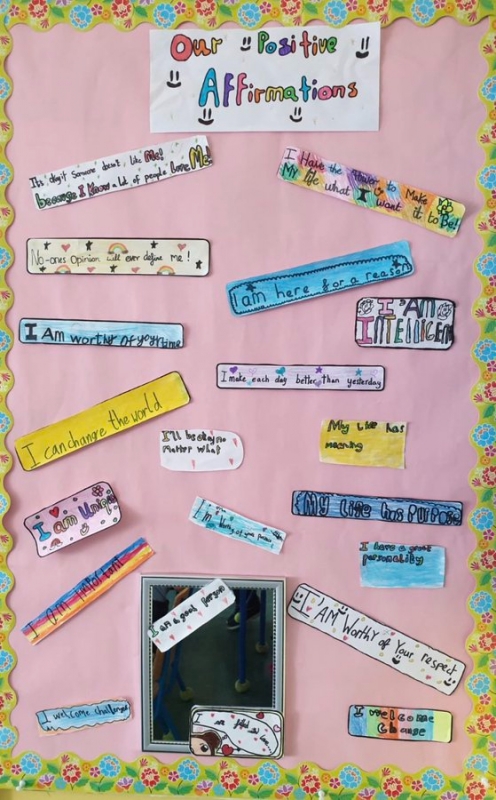 Our Positive
Affirmations
like Me!
because I know a lot of people love Me
I Have the Power to Make
My life what I want it to Be!
No-ones opinion will ever define me!
I am here for a reason
I AM
INTELLIGEN
I Am worthy of your time
I make each day better than yesterday
I can change the world
I'll be okay no
matter what
My life has
meaning
I am Unique
I'm of your
My Life has Purpose
I have a great
personality
I am important
I am a good person
I AM Worthy of Your respect
I welcome challenges
I am
I welcome